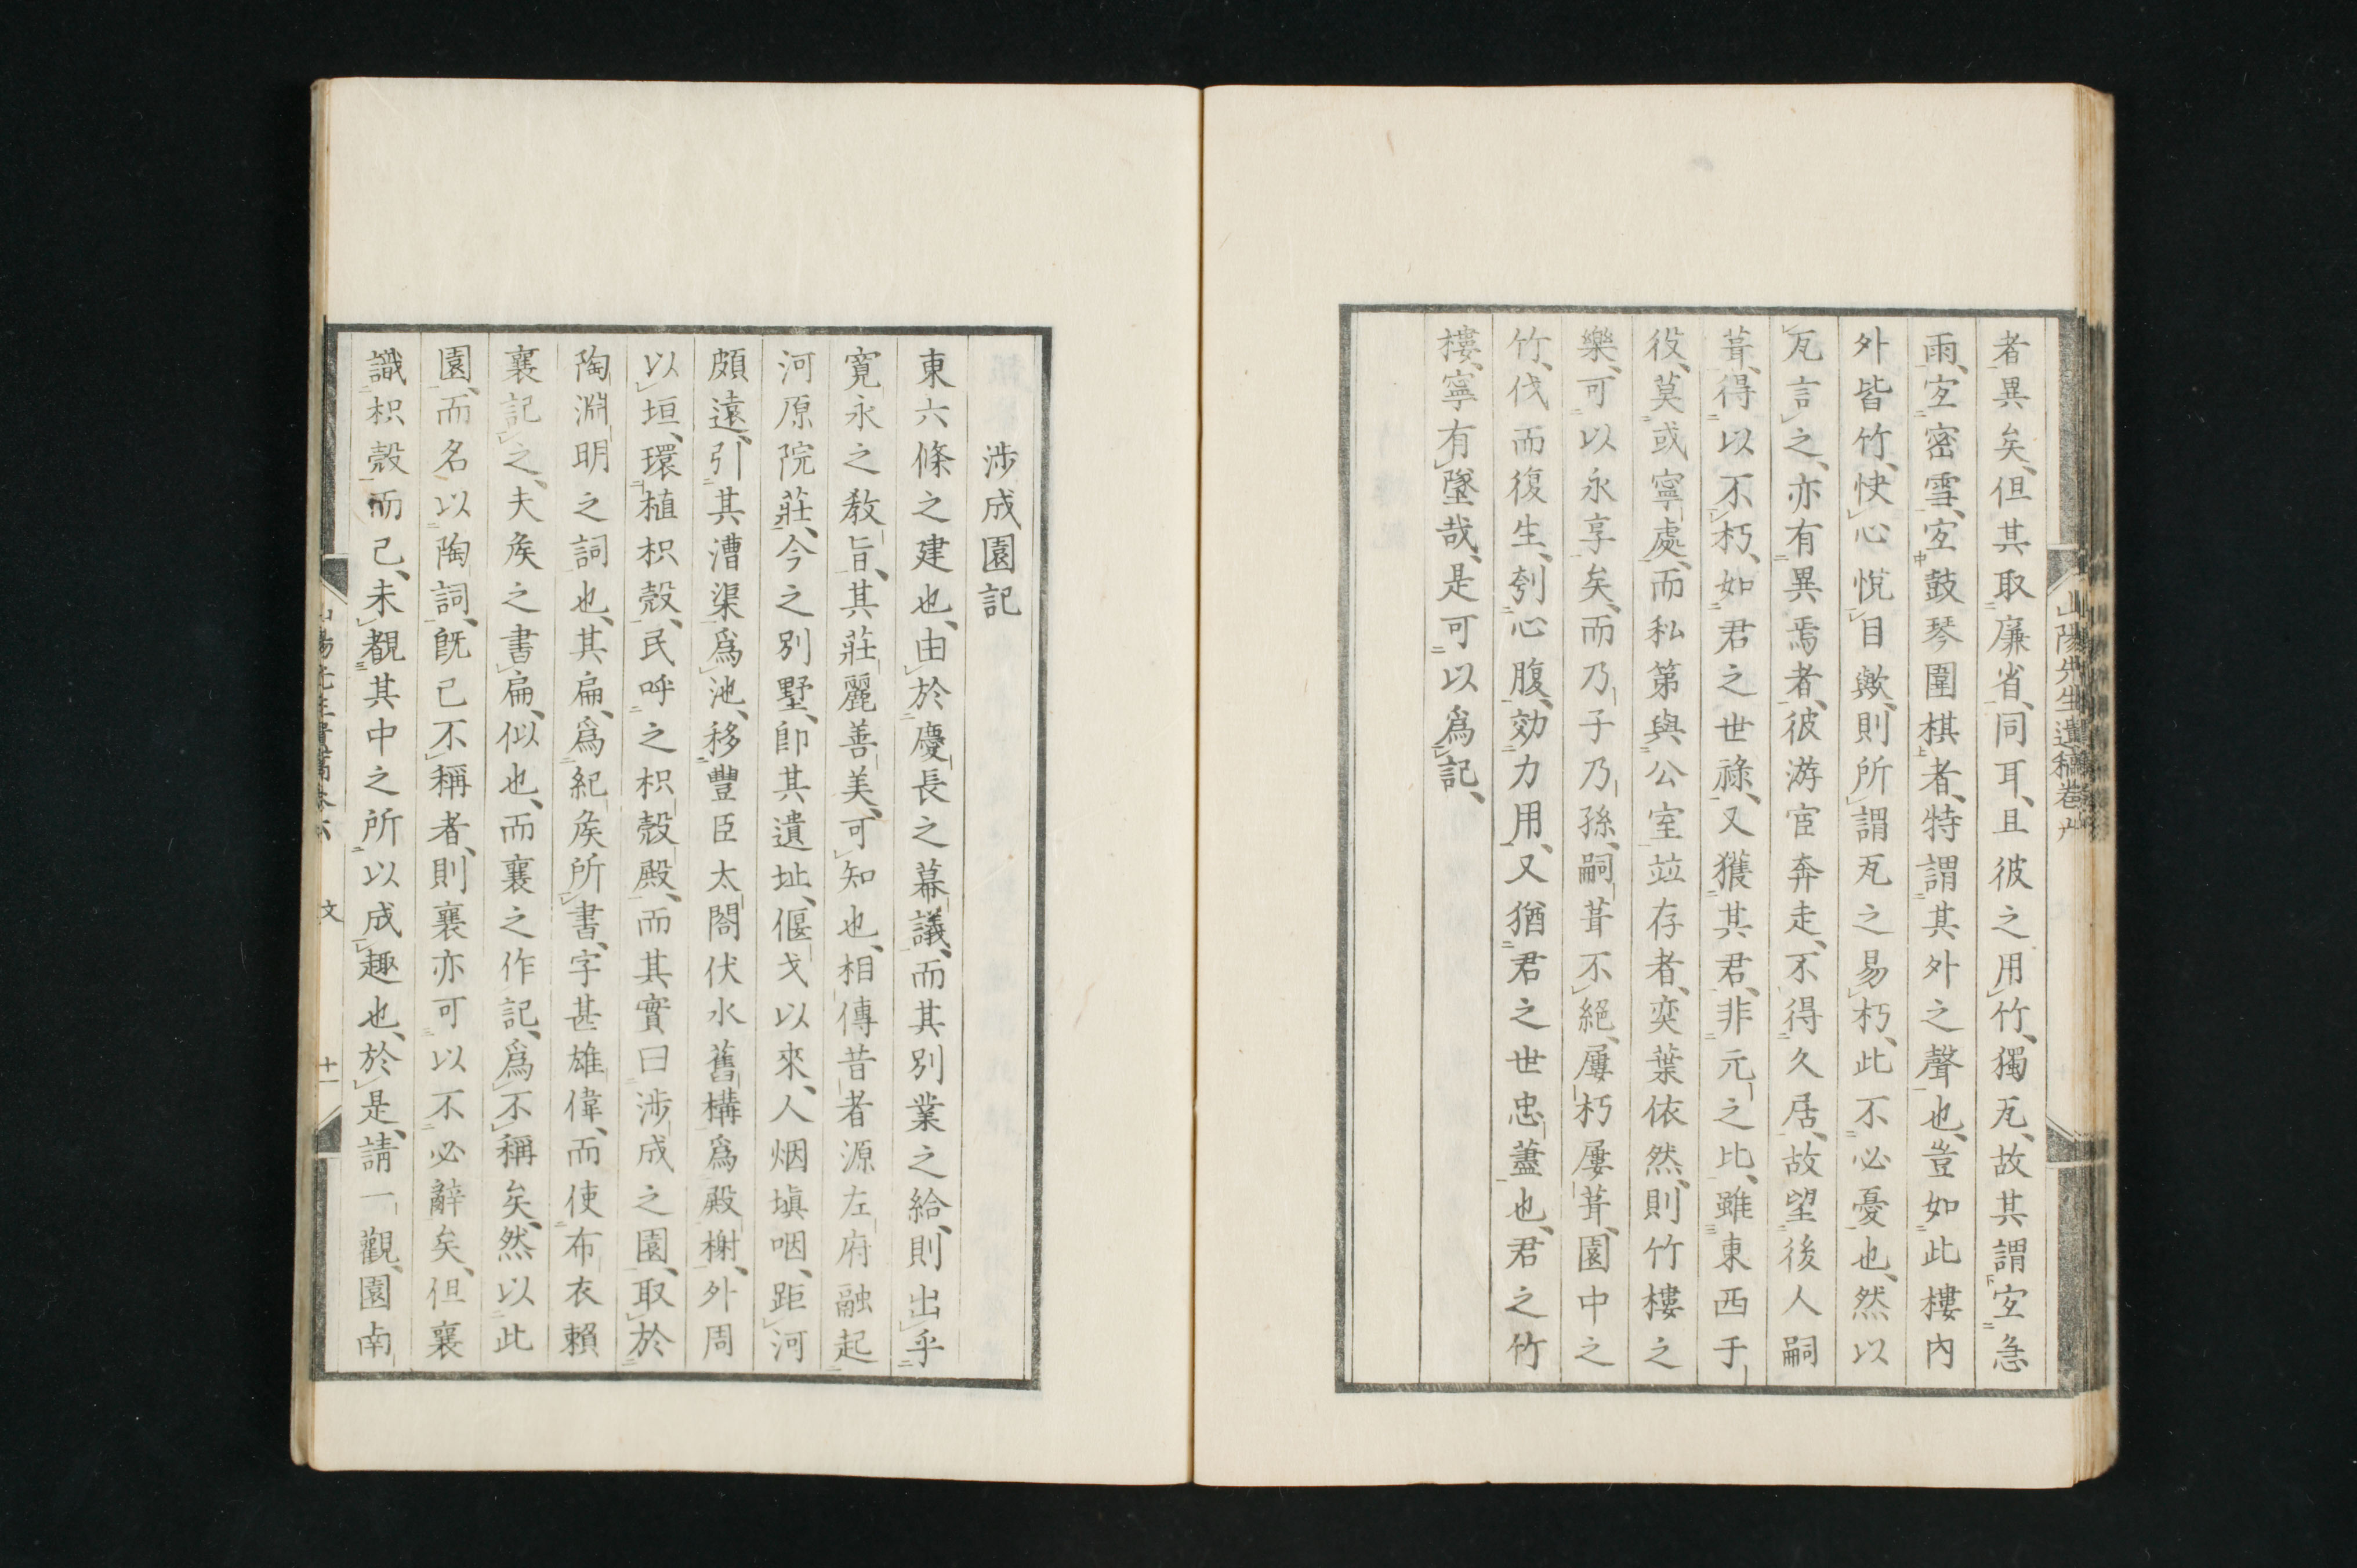 者異矣、但其取廉省、同耳、且彼之用竹、獨瓦、故其謂宐急
雨、宐密雪、宐鼓琴圍棋者、特謂其外之聲也、豈如此樓內
外皆竹、快心悅目歟、則所謂瓦之易朽、此不必憂也、然以
瓦言之、亦有異焉者、彼游宦奔走、不得久居、故望後人嗣
葺、得以不朽、如君之世祿、又獲其君、非元之比、雖東西于
役、莫或寧處、而私第與公室竝存者、奕葉依然、則竹樓之
樂、可以永享矣、而乃子乃孫、嗣葺不絕、屢朽屢葺、園中之
竹、伐而復生、刳心腹、効力用、又猶君之世忠藎也、君之竹
樓、寧有墜哉、是可以爲記、
山陽先生遺稿卷六
涉成園記
東六條之建也、由於慶長之幕議、而其別業之給、則出乎
寬永之教旨、其莊麗善美、可知也、相傳昔者源左府融起
河原院莊、今之別墅、卽其遺址、偃戈以來、人烟塡咽、距河
頗遠、引其漕渠爲池、移豐臣太閤伏水舊構爲殿榭、外周
以垣、環植枳殼、民呼之枳殼殿、而其實曰涉成之園、取於
陶淵明之詞也、其扁、爲紀矦所書、字甚雄偉、而使布衣賴
襄記之、夫矦之書扁、似也、而襄之作記、爲不稱矣、然以此
園、而名以陶詞、旣已不稱者、則襄亦可以不必辭矣、但襄
識枳殼而已、未覩其中之所以成趣也、於是、請一觀、園南
山陽先生遺稿卷六 文 十一